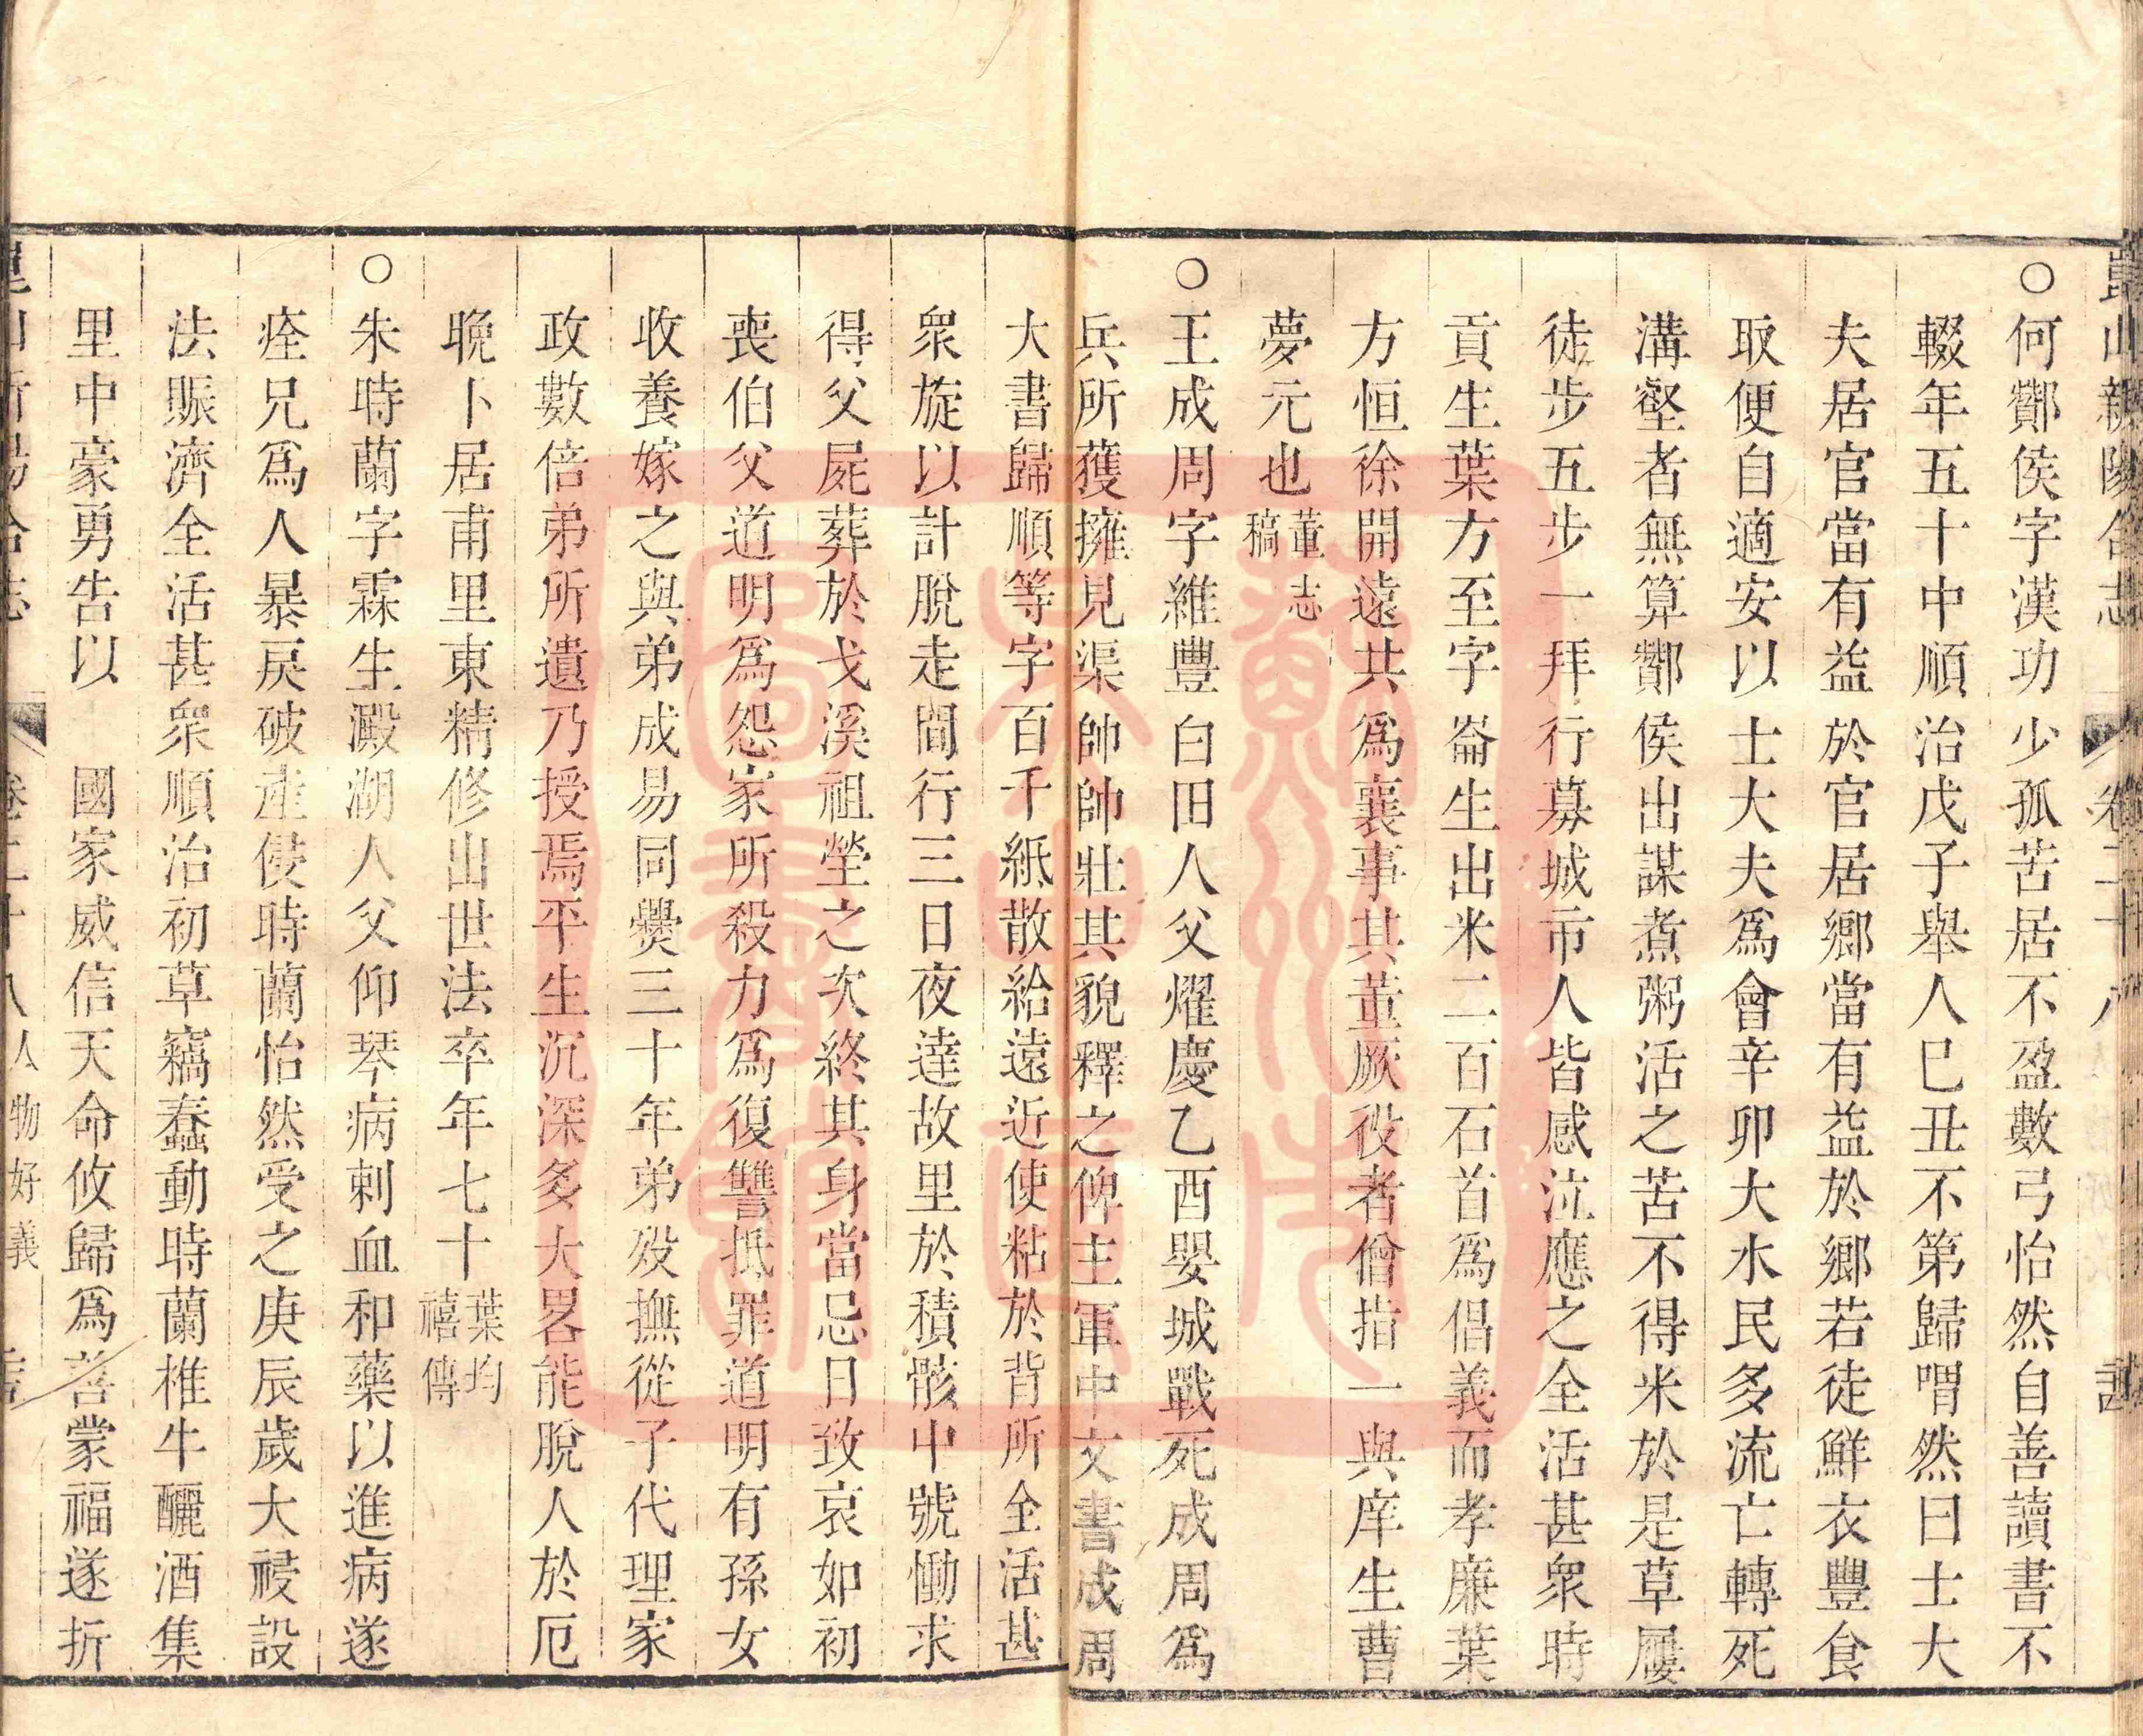 崑山新陽合志 卷二十八
○何酇侯字漢功少孤苦居不盈數弓怡然自善讀書不
輟年五十中順治戊子舉人巳丑不第歸喟然曰士大
夫居官當有益於官居鄉當有益於鄉若徒鮮衣豐食
取便自適安以士大夫爲會辛卯大水民多流亡轉死
溝壑者無算酇侯出謀煮粥活之苦不得米於是草屨
徒步五步一拜行募城市人皆感泣應之全活甚衆時
貢生葉方至字崙生出米二百石首爲倡義而孝廉葉
方恒徐開遠共爲襄事其董厥役者僧指一與庠生曹
夢元也董志稿
○王成周字維豐白田人父燿慶乙酉嬰城戰死成周爲
兵所獲擁見渠帥帥壯其貌釋之俾主軍中文書成周
大書歸順等字百千紙散給遠近使粘於背所全活甚
衆旋以計脫走間行三日夜達故里於積骸中號慟求
得父屍葬於戈溪祖塋之次終其身當忌日致哀如初
喪伯父道明爲怨家所殺力爲復讐抵罪道明有孫女
收養嫁之與弟成易同爨三十年弟歿撫從子代理家
政數倍弟所遺乃授焉平生沉深多大畧能脫人於厄
晚卜居甫里東精修出世法卒年七十葉均禧傳
○朱時蘭字霖生澱湖人父仰琴病刺血和藥以進病遂
痊兄爲人暴戾破產侵時蘭怡然受之庚辰歲大祲設
法賑濟全活甚衆順治初草竊蠢動時蘭椎牛釃酒集
里中豪勇告以　國家威信天命攸歸爲善蒙福遂折
崑山新陽合志 卷二十八 人物 好義